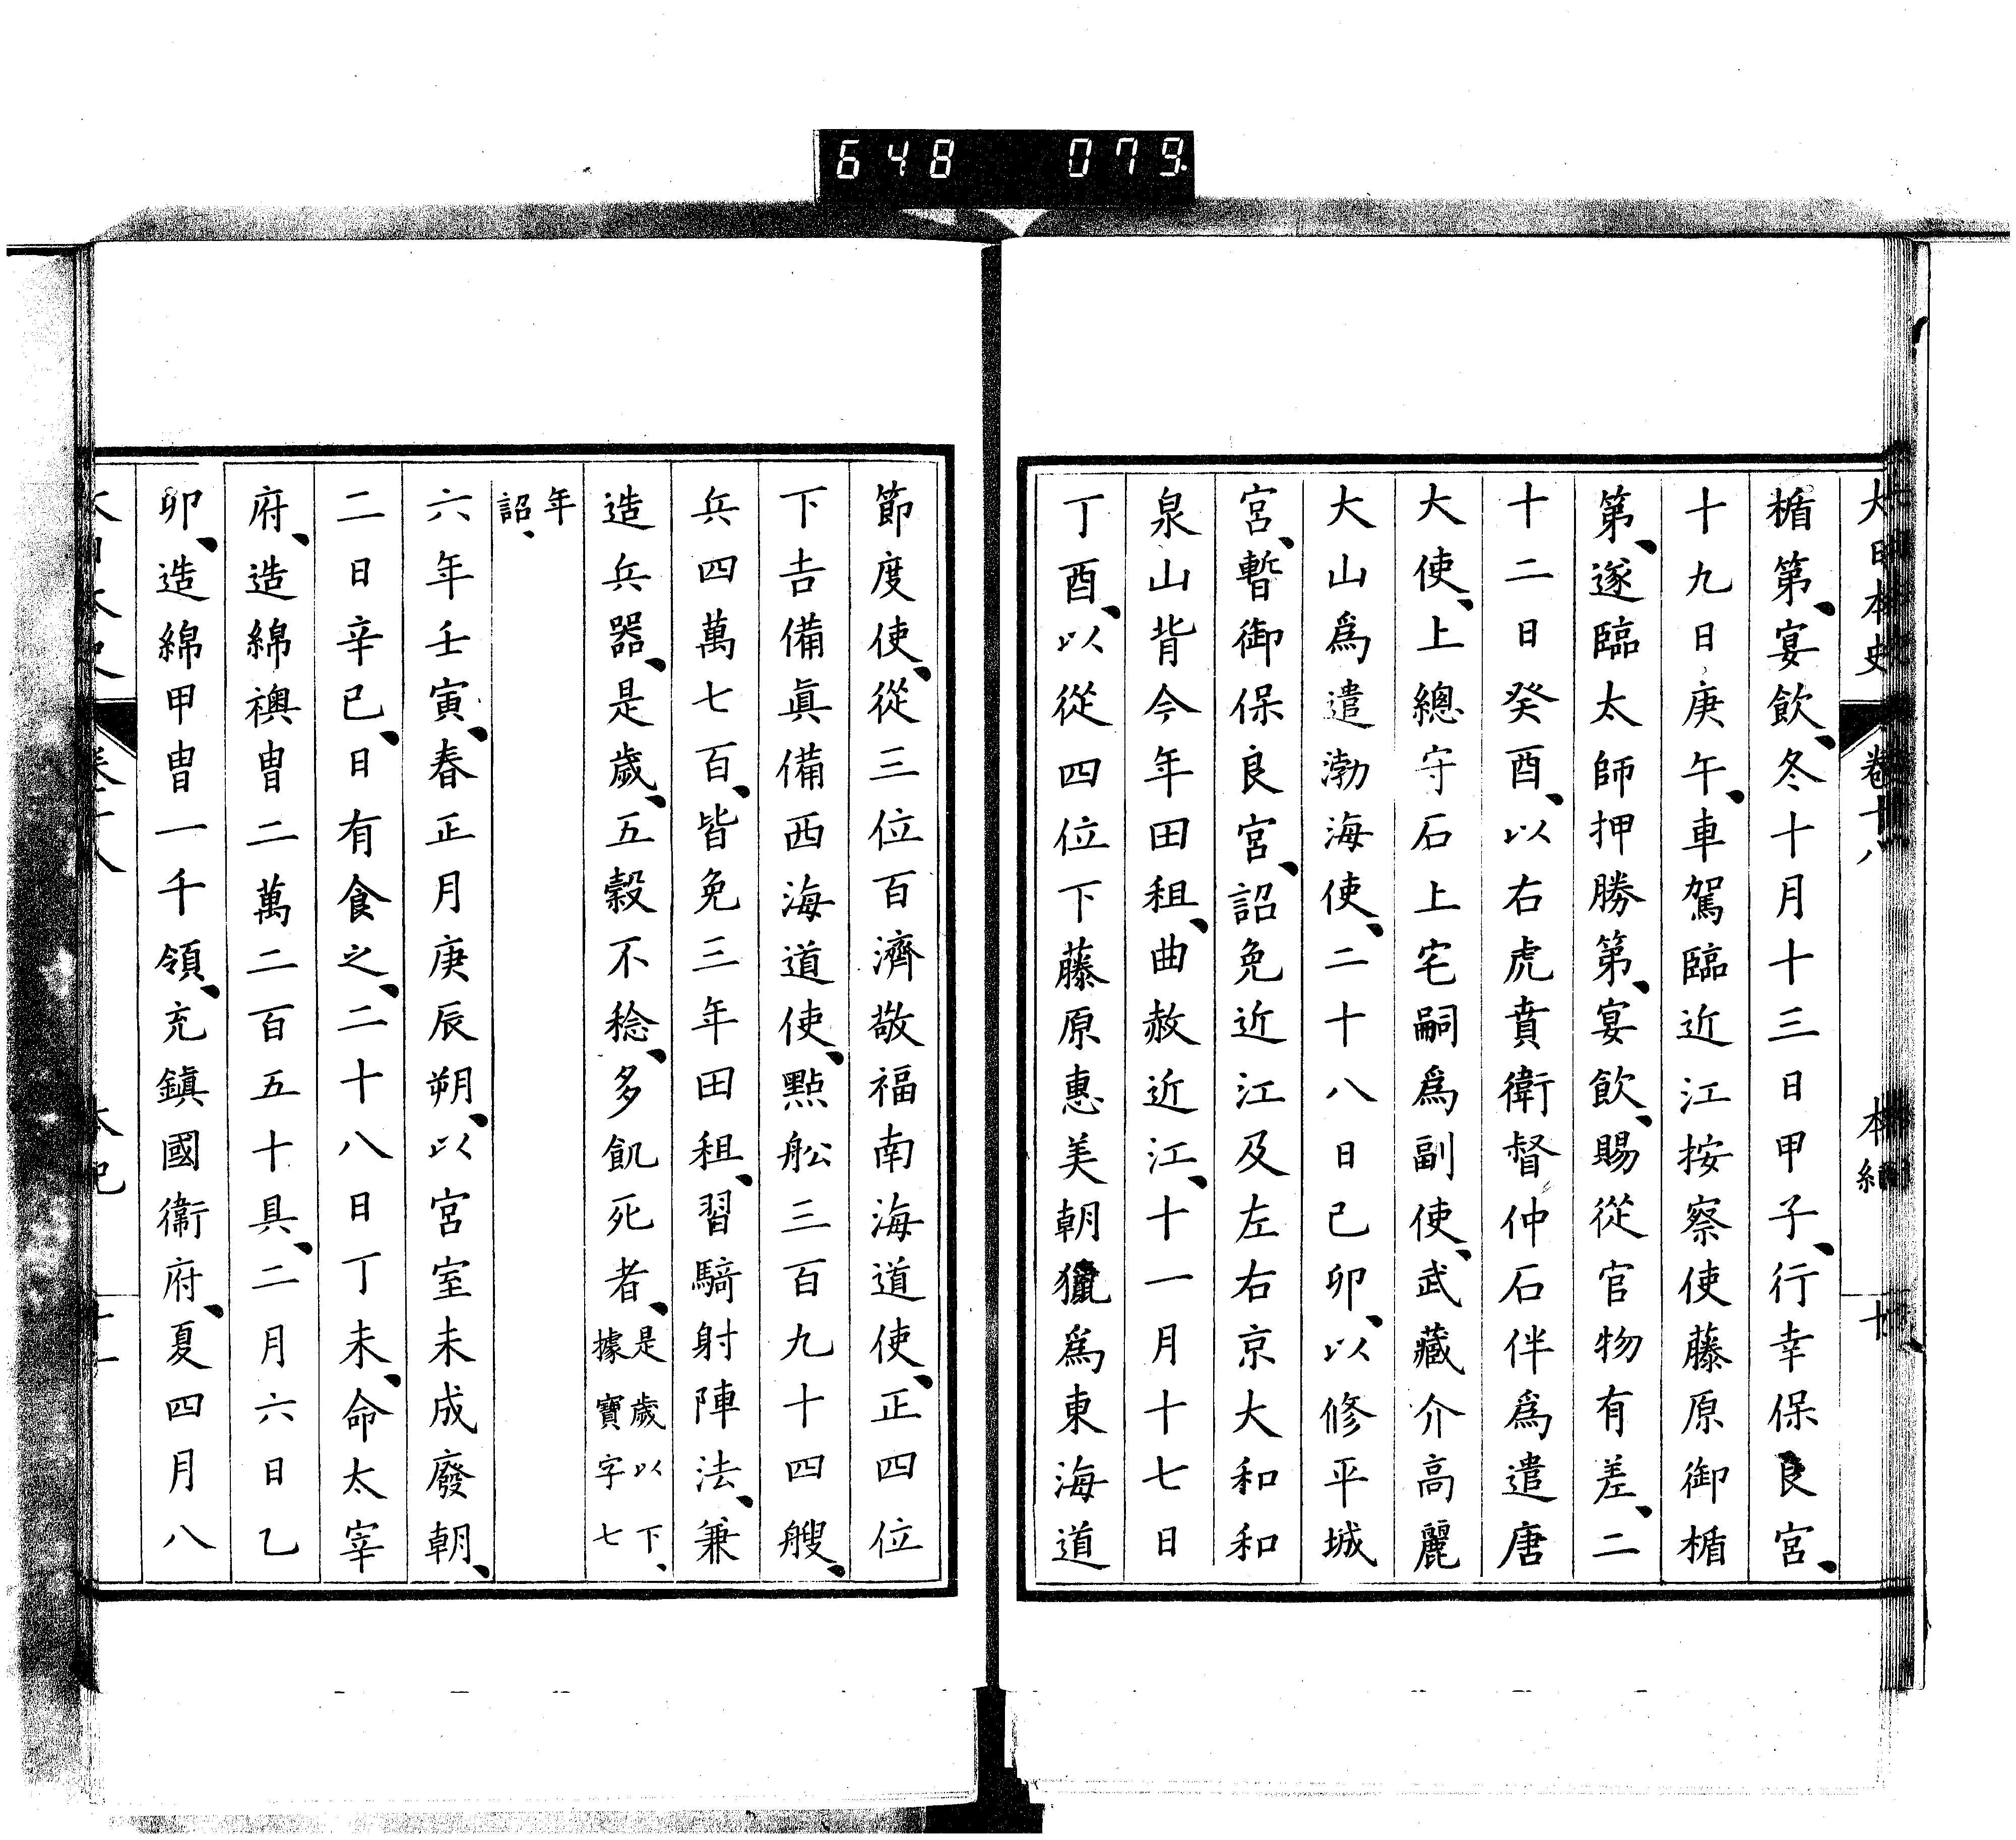 648 079
大日本史 卷十八 本紀 十
楯第、宴飲、冬十月十三日甲子、行幸保良宮、
十九日庚午、車駕臨近江按察使藤原御楯
第、遂臨太師押勝第、宴飲、賜從官物有差、二
十二日癸酉、以右虎賁衛督仲石伴爲遣唐
大使、上總守石上宅嗣爲副使、武藏介高麗
大山爲遣渤海使、二十八日己卯、以修平城
宮、暫御保良宮、詔免近江及左右京大和和
泉山背今年田租、曲赦近江、十一月十七日
丁酉、以從四位下藤原惠美朝獵爲東海道
節度使、從三位百濟敬福南海道使、正四位
下吉備眞備西海道使、點舩三百九十四艘、
兵四萬七百、皆免三年田租、習騎射陣法、兼
造兵器、是歲、五穀不稔、多飢死者、是歲以下、
據寶字七
年
詔、
六年壬寅、春正月庚辰朔、以宮室未成廢朝、
二日辛巳、日有食之、二十八日丁未、命太宰
府、造綿襖冑二萬二百五十具、二月六日乙
卯、造綿甲冑一千領、充鎮國衞府、夏四月八
大日本史 卷十八 本紀 十一